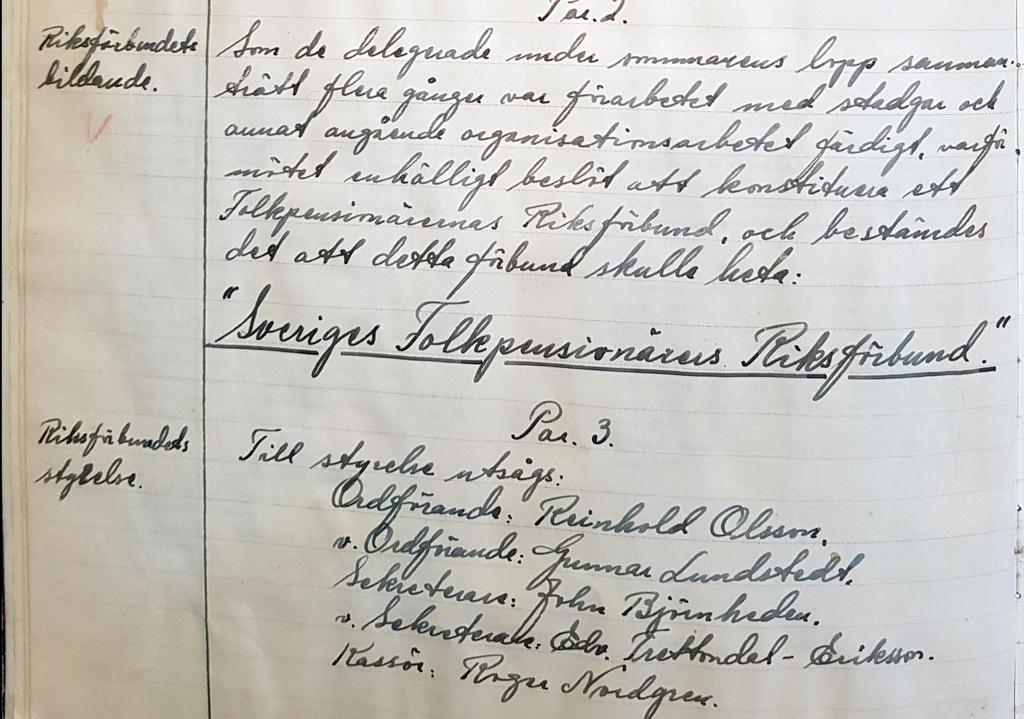 Par. 2.
Riksförbundets
bildande.
Som de delegerade under sommarens lopp samman-
trätt flera gånger var förarbetet med stadgar och
annat angående organisationsarbetet färdigt, varför
mötet enhälligt beslöt att konstituera ett
Folkpensionärernas Riksförbund, och bestämdes
det att detta förbund skulle heta:
"Sveriges Folkpensionärers Riksförbund."
Par. 3.
Riksförbundets
styrelse.
Till styrelse utsågs:
Ordförande: Reinhold Olsson.
v. Ordförande: Gunnar Lundstedt.
Sekreterare: John Björnheden.
v. Sekreterare: Edv. Trettondal-Eriksson.
Kassör: Roger Nordgren.